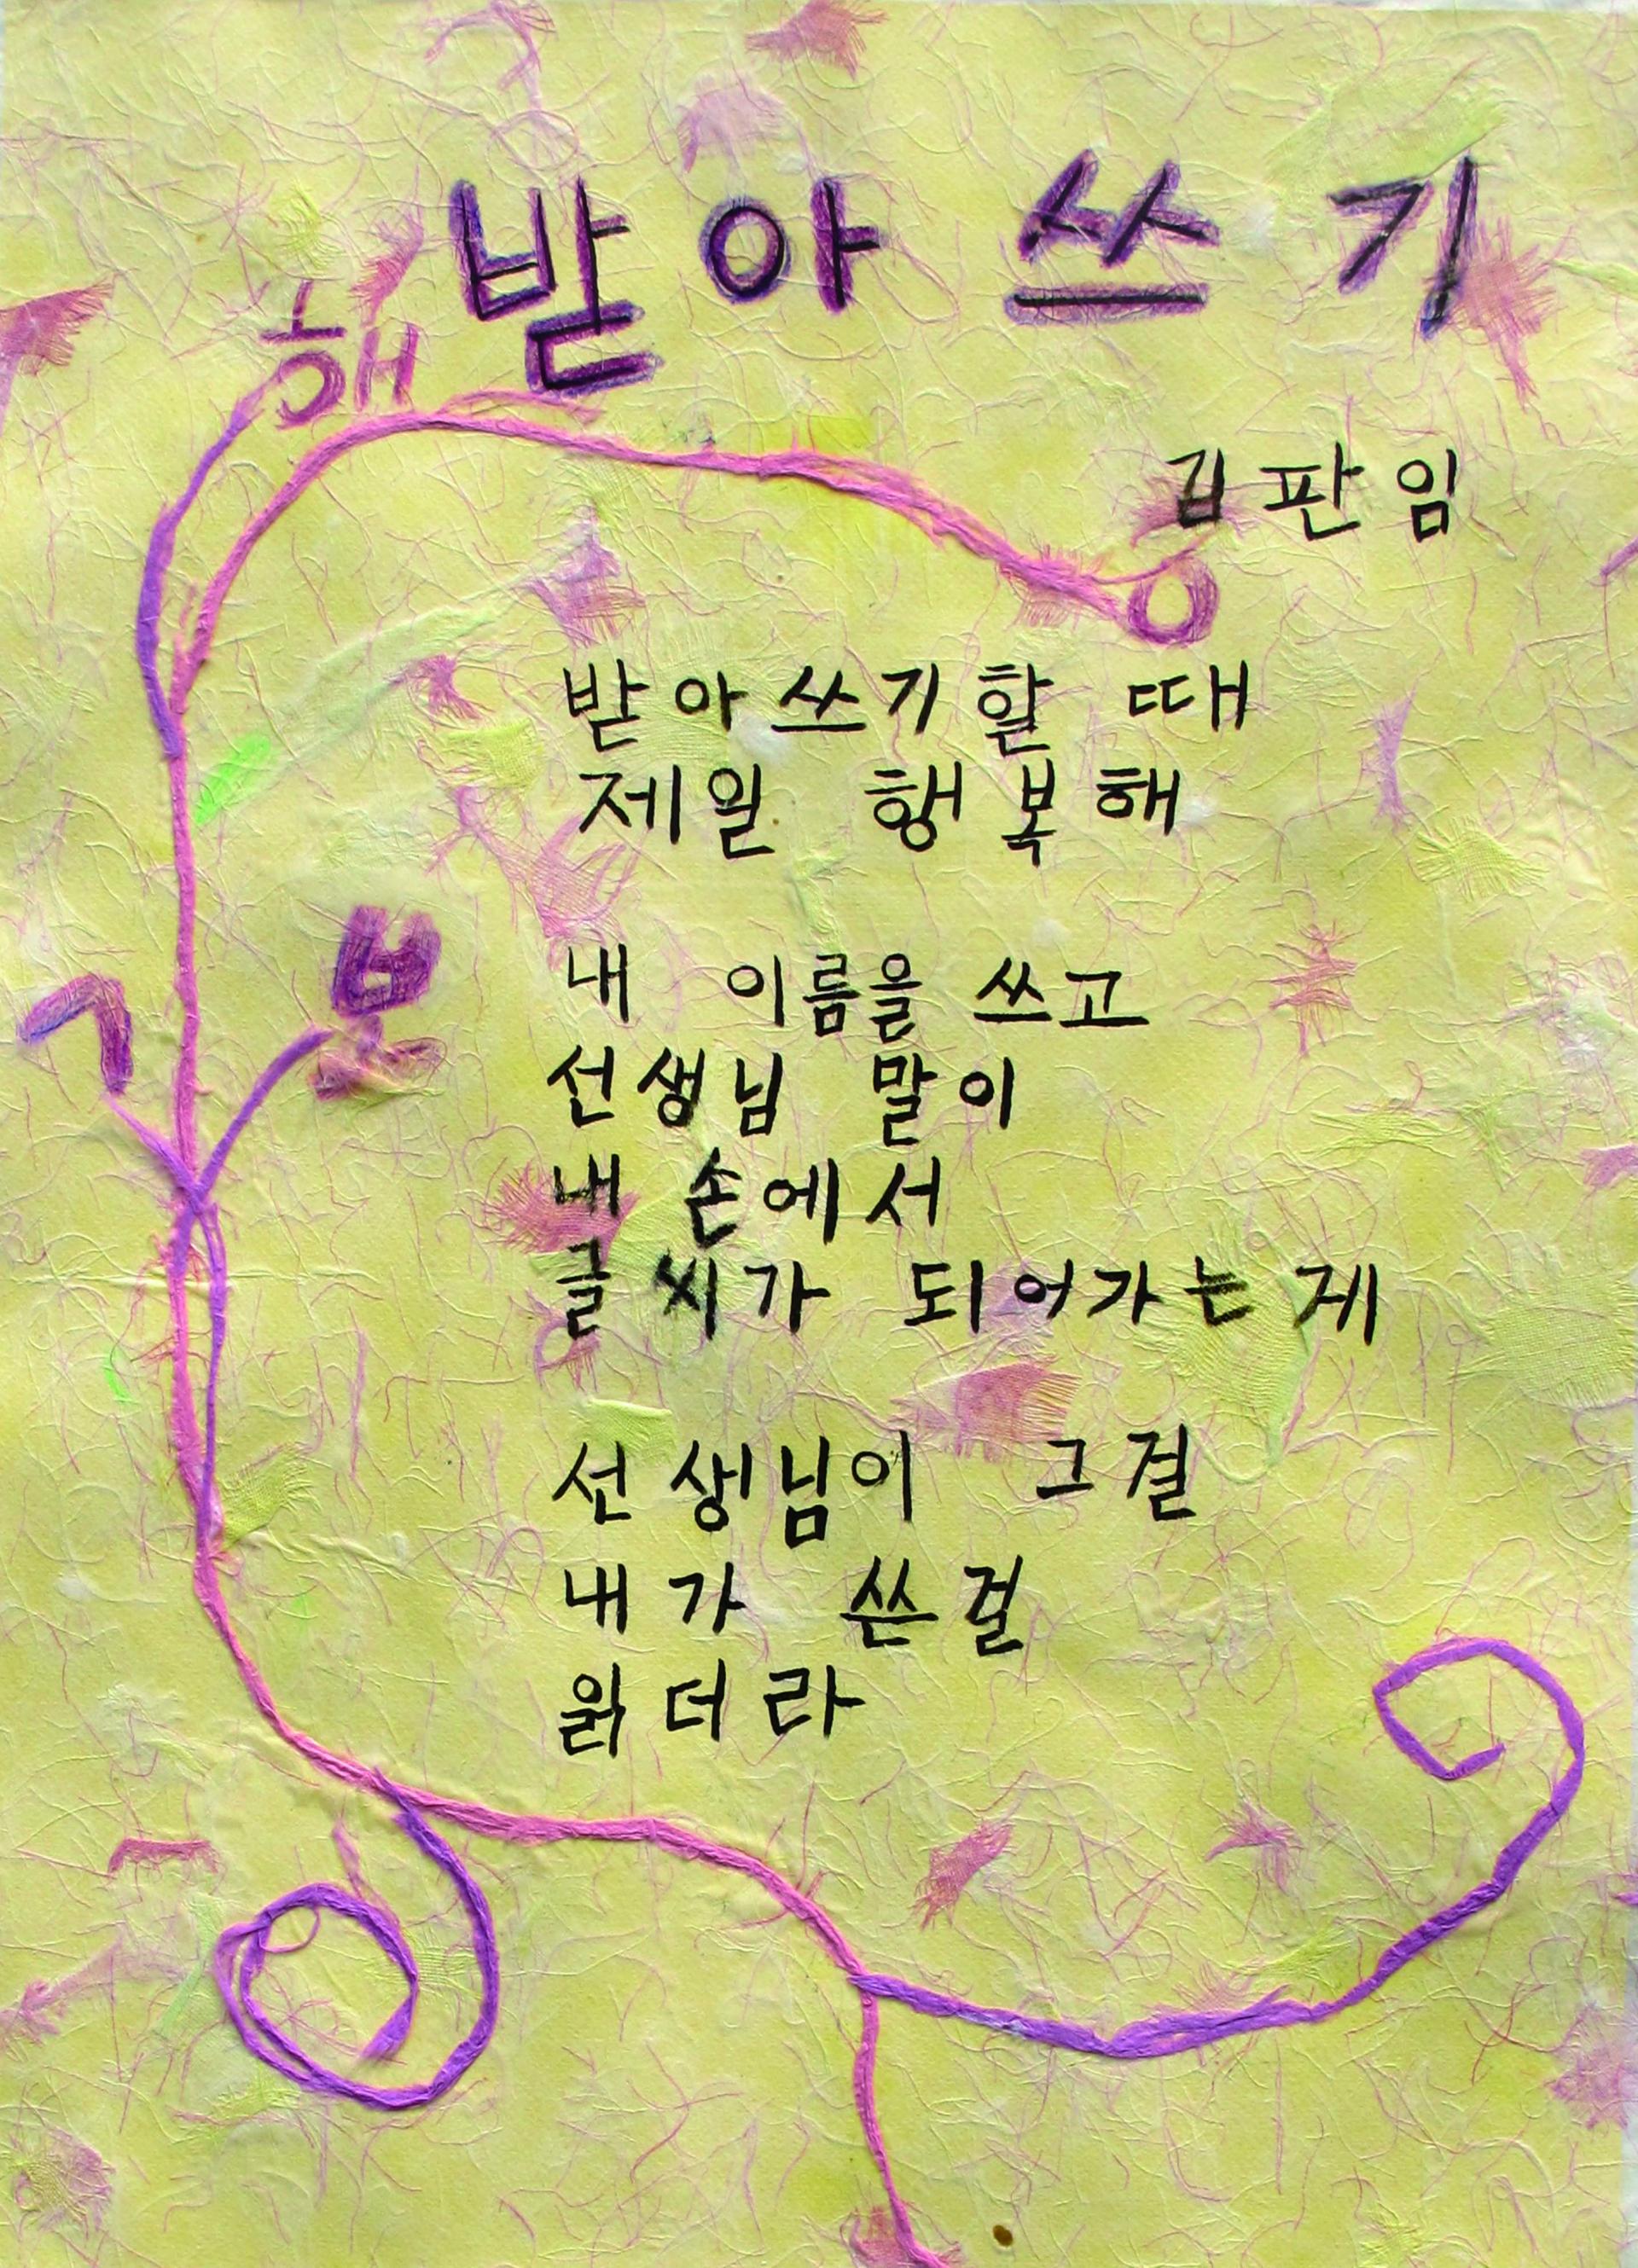 받아쓰기
해
김판임
ㅇ
받아쓰기할 때
제일 행복해
보
ㄱ
내 이름을 쓰고
선생님 말이
내 손에서
글씨가 되어가는 제
선생님이 그걸
내가 쓴걸
읽더라